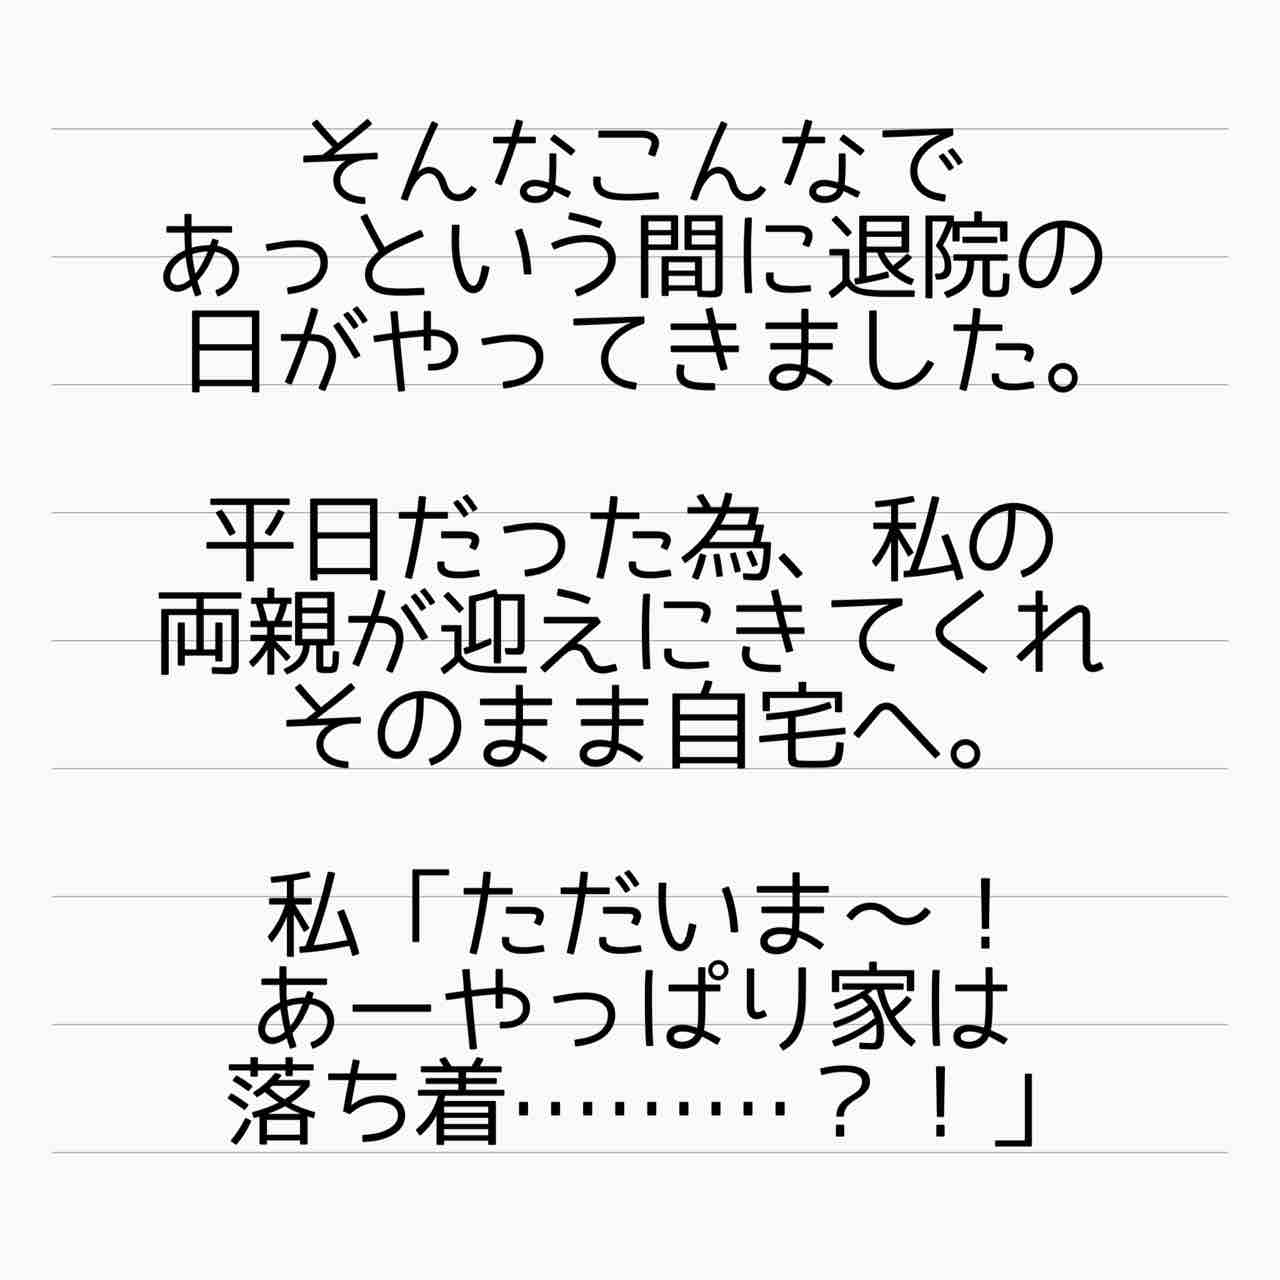 そんなこんなで
あっという間に退院の
日がやってきました。
平日だった為、私の
両親が迎えにきてくれ
そのまま自宅へ。
私「ただいま〜！
あーやっぱり家は
落ち着………？！」